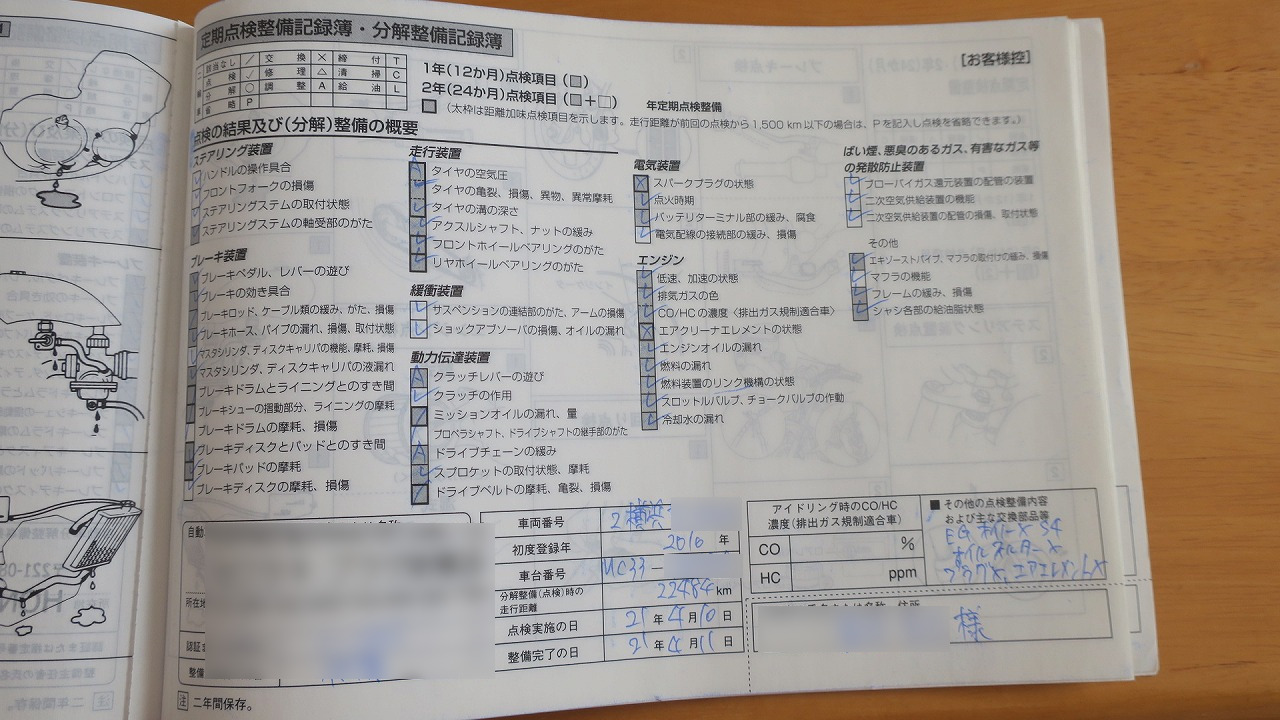 定期点検整備記録簿・分解整備記録簿
[お客様控]
該当なし ／ 交換 × 締付 T
点検 ✓ 修理 △ 清掃 C
分解 ○ 調整 A 給油 L
省略 P
1年(12か月)点検項目(□)
2年(24か月)点検項目(□+□) 年定期点検整備
(太枠は距離加味点検項目を示します。走行距離が前回の点検から1,500 km以下の場合は、Pを記入し点検を省略できます。)
点検の結果及び(分解)整備の概要
ステアリング装置
ハンドルの操作具合
フロントフォークの損傷
ステアリングステムの取付状態
ステアリングステムの軸受部のがた
ブレーキ装置
ブレーキペダル、レバーの遊び
ブレーキの効き具合
ブレーキロッド、ケーブル類の緩み、がた、損傷
ブレーキホース、パイプの漏れ、損傷、取付状態
マスタシリンダ、ディスクキャリパの機能、摩耗、損傷
マスタシリンダ、ディスクキャリパの液漏れ
ブレーキドラムとライニングとのすき間
ブレーキシューの摺動部分、ライニングの摩耗
ブレーキドラムの摩耗、損傷
ブレーキディスクとパッドとのすき間
ブレーキパッドの摩耗
ブレーキディスクの摩耗、損傷
走行装置
A タイヤの空気圧
タイヤの亀裂、損傷、異物、異常摩耗
タイヤの溝の深さ
アクスルシャフト、ナットの緩み
フロントホイールベアリングのがた
リヤホイールベアリングのがた
緩衝装置
サスペンションの連結部のがた、アームの損傷
ショックアブソーバの損傷、オイルの漏れ
動力伝達装置
A クラッチレバーの遊び
クラッチの作用
ミッションオイルの漏れ、量
プロペラシャフト、ドライブシャフトの継手部のがた
A ドライブチェーンの緩み
スプロケットの取付状態、摩耗
ドライブベルトの摩耗、亀裂、損傷
電気装置
× スパークプラグの状態
点火時期
バッテリターミナル部の緩み、腐食
電気配線の接続部の緩み、損傷
エンジン
低速、加速の状態
排気ガスの色
CO/HCの濃度〈排出ガス規制適合車〉
× エアクリーナエレメントの状態
エンジンオイルの漏れ
燃料の漏れ
燃料装置のリンク機構の状態
スロットルバルブ、チョークバルブの作動
冷却水の漏れ
ばい煙、悪臭のあるガス、有害なガス等
の発散防止装置
ブローバイガス還元装置の配管の装置
二次空気供給装置の機能
二次空気供給装置の配管の損傷、取付状態
その他
エキゾーストパイプ、マフラの取付けの緩み、損傷
マフラの機能
フレームの緩み、損傷
シャシ各部の給油脂状態
車両番号 2横浜
初度登録年 2010年
車台番号 MC33-
分解整備(点検)時の
走行距離 22484 km
点検実施の日 21年4月10日
整備完了の日 21年4月11日
アイドリング時のCO/HC
濃度(排出ガス規制適合車)
CO %
HC ppm
■ その他の点検整備内容
および主な交換部品等
EGオイル× S4
オイルフィルター×
プラグ×, エアエレメント×
様
注 二年間保存。